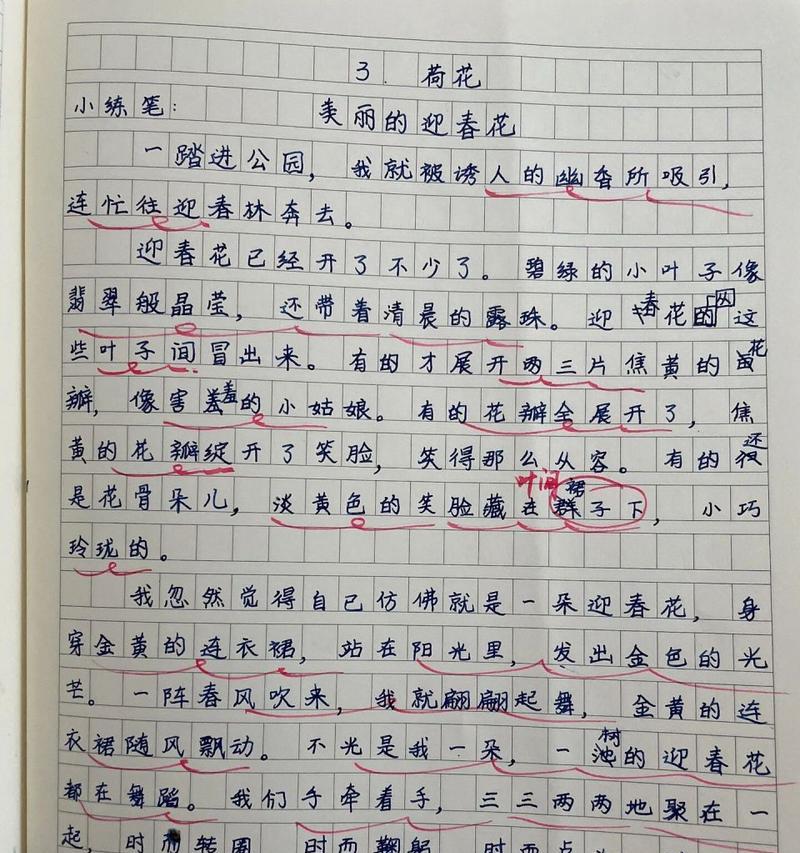 3. 荷花
小练笔： 美丽的迎春花
一踏进公园，我就被诱人的幽香所吸引，
连忙往迎春林奔去。
迎春花已经开了不少了。碧绿的小叶子像
翡翠般晶莹，还带着清晨的露珠。迎春花从这
些叶子间冒出来。有的才展开两三片焦黄的花
瓣，像害羞的小姑娘。有的花瓣全展开了，焦
黄的花瓣绽开了笑脸，笑得那么从容。有的还
是花骨朵儿，淡黄色的笑脸藏在裙子下，小巧
叶间
玲珑的。
我忽然觉得自己仿佛就是一朵迎春花，身
穿金黄的连衣裙，站在阳光里，发出金色的光
芒。一阵春风吹来，我就翩翩起舞，金黄的连
衣裙随风飘动。不光是我一朵，一树的迎春花
都在舞蹈。我们手牵着手，三三两两地聚在一
起，时而转圈 时而鞠躬 时而点